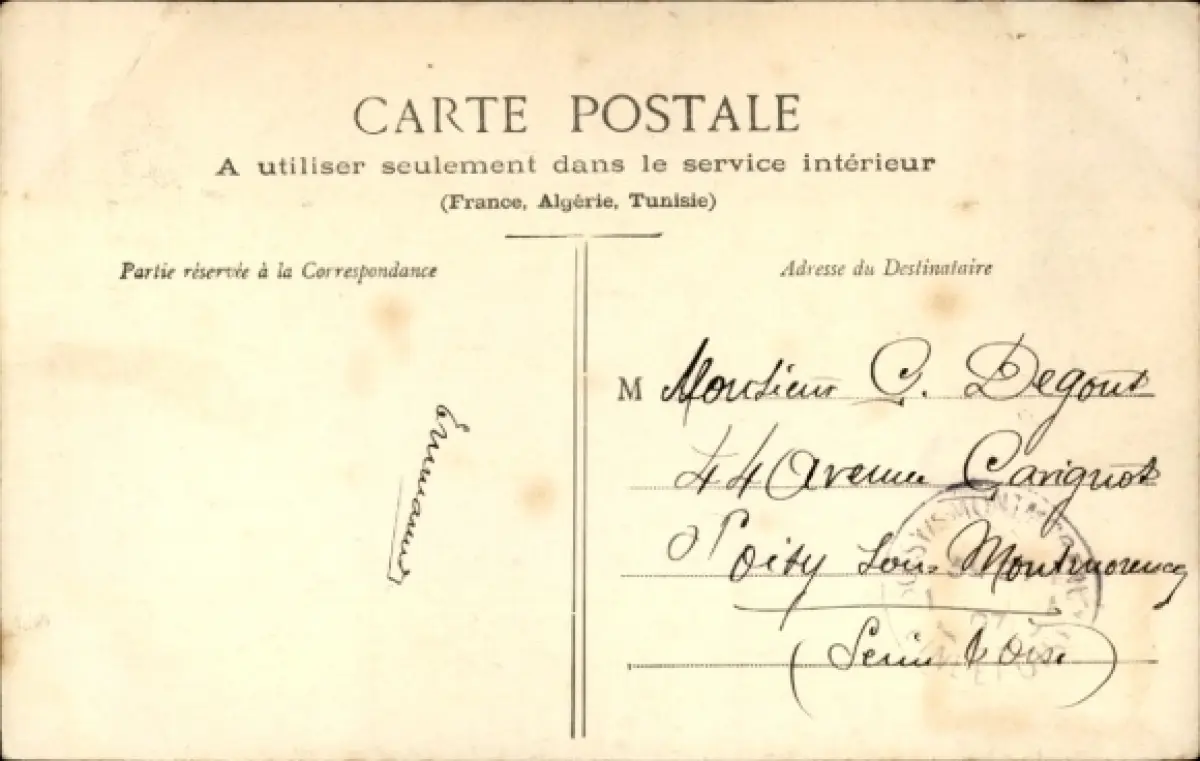 CARTE POSTALE
A utiliser seulement dans le service intérieur
(France, Algérie, Tunisie)
Partie réservée à la Correspondance
Adresse du Destinataire
M Monsieur C. Degout
44 Avenue
Montmorency
(Seine & Oise)